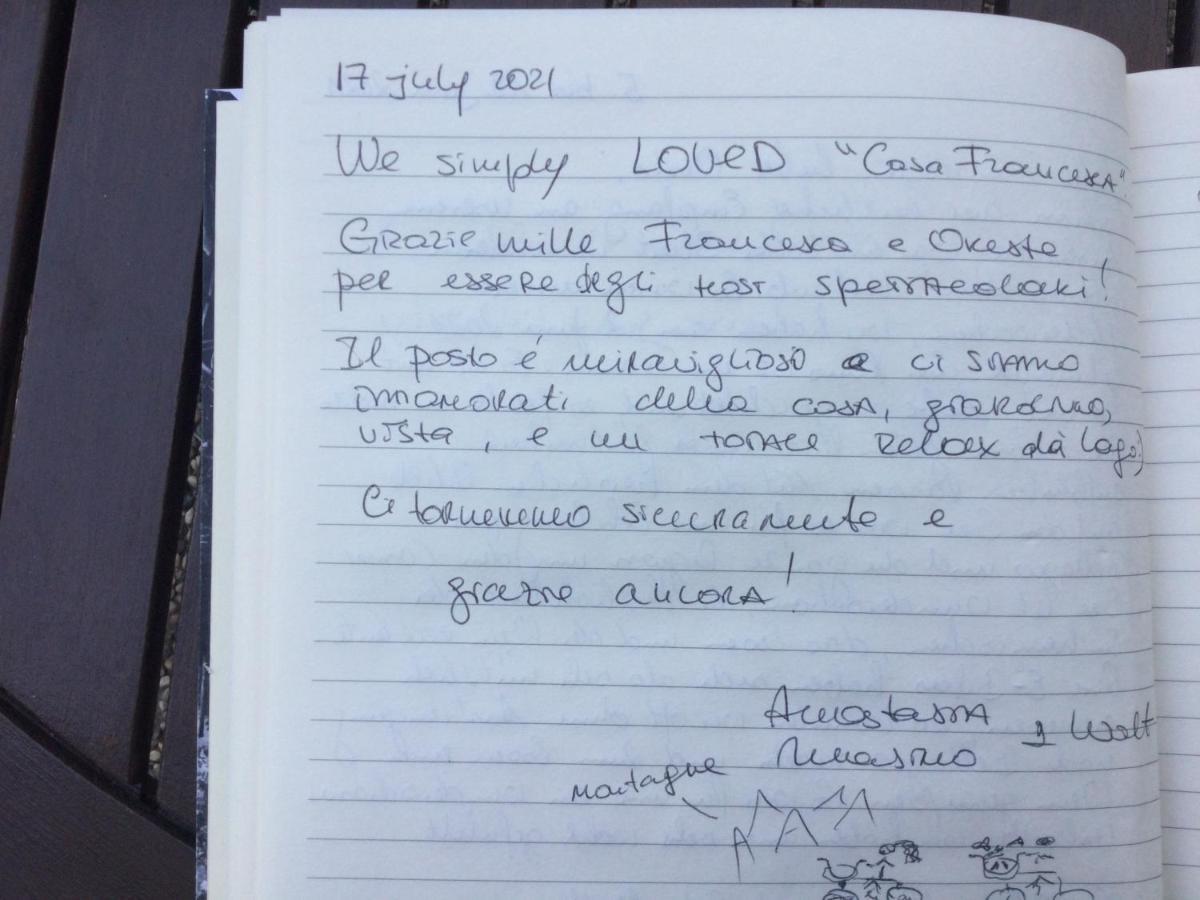 17 july 2021
We simply LOVED "Casa Francesca"
Grazie mille Francesca e Oreste
per essere degli host spettacolari!
Il posto é meraviglioso e ci siamo
innamorati della casa, giardino,
vista, e un totale relax dà lago:)
Ci torneremo sicuramente e
grazie ancora!
Anastasia
& Walt
montagne